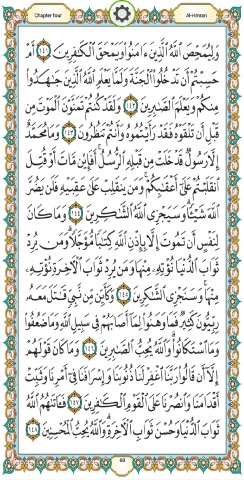 Chapter four
Al-Imran
وَلِيُمَحِّصَ ٱللَّهُ ٱلَّذِينَ ءَامَنُوا۟ وَيَمْحَقَ ٱلْكَٰفِرِينَ ١٤١ أَمْ
حَسِبْتُمْ أَن تَدْخُلُوا۟ ٱلْجَنَّةَ وَلَمَّا يَعْلَمِ ٱللَّهُ ٱلَّذِينَ جَٰهَدُوا۟
مِنكُمْ وَيَعْلَمَ ٱلصَّٰبِرِينَ ١٤٢ وَلَقَدْ كُنتُمْ تَمَنَّوْنَ ٱلْمَوْتَ مِن
قَبْلِ أَن تَلْقَوْهُ فَقَدْ رَأَيْتُمُوهُ وَأَنتُمْ تَنظُرُونَ ١٤٣ وَمَا مُحَمَّدٌ
إِلَّا رَسُولٌ قَدْ خَلَتْ مِن قَبْلِهِ ٱلرُّسُلُ ۚ أَفَإِي۟ن مَّاتَ أَوْ قُتِلَ
ٱنقَلَبْتُمْ عَلَىٰٓ أَعْقَٰبِكُمْ ۚ وَمَن يَنقَلِبْ عَلَىٰ عَقِبَيْهِ فَلَن يَضُرَّ
ٱللَّهَ شَيْـًٔا ۗ وَسَيَجْزِى ٱللَّهُ ٱلشَّٰكِرِينَ ١٤٤ وَمَا كَانَ
لِنَفْسٍ أَن تَمُوتَ إِلَّا بِإِذْنِ ٱللَّهِ كِتَٰبًا مُّؤَجَّلًا ۗ وَمَن يُرِدْ
ثَوَابَ ٱلدُّنْيَا نُؤْتِهِۦ مِنْهَا وَمَن يُرِدْ ثَوَابَ ٱلْءَاخِرَةِ نُؤْتِهِۦ
مِنْهَا ۚ وَسَنَجْزِى ٱلشَّٰكِرِينَ ١٤٥ وَكَأَيِّن مِّن نَّبِىٍّ قَٰتَلَ مَعَهُۥ
رِبِّيُّونَ كَثِيرٌ فَمَا وَهَنُوا۟ لِمَآ أَصَابَهُمْ فِى سَبِيلِ ٱللَّهِ وَمَا ضَعُفُوا۟
وَمَا ٱسْتَكَانُوا۟ ۗ وَٱللَّهُ يُحِبُّ ٱلصَّٰبِرِينَ ١٤٦ وَمَا كَانَ قَوْلَهُمْ
إِلَّآ أَن قَالُوا۟ رَبَّنَا ٱغْفِرْ لَنَا ذُنُوبَنَا وَإِسْرَافَنَا فِىٓ أَمْرِنَا وَثَبِّتْ
أَقْدَامَنَا وَٱنصُرْنَا عَلَى ٱلْقَوْمِ ٱلْكَٰفِرِينَ ١٤٧ فَـَٔاتَىٰهُمُ ٱللَّهُ
ثَوَابَ ٱلدُّنْيَا وَحُسْنَ ثَوَابِ ٱلْءَاخِرَةِ ۗ وَٱللَّهُ يُحِبُّ ٱلْمُحْسِنِينَ ١٤٨
68